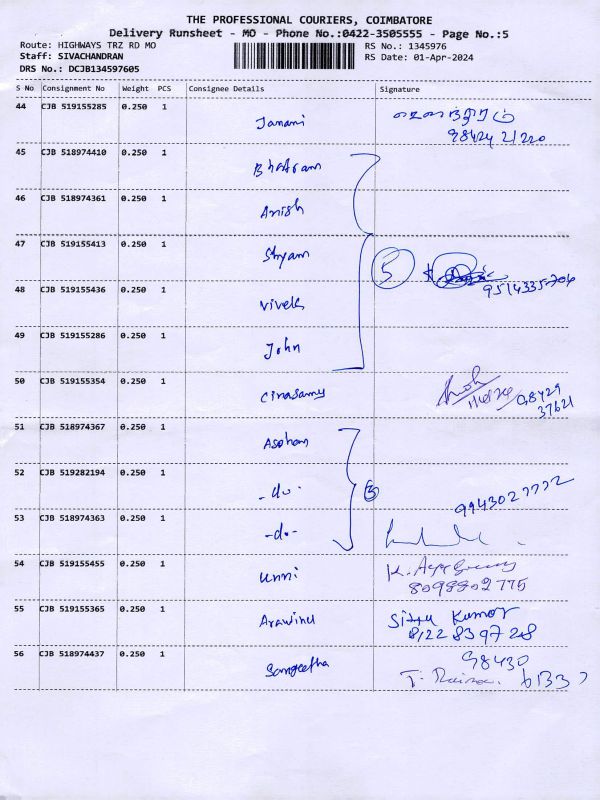 THE PROFESSIONAL COURIERS, COIMBATORE
Delivery Runsheet - MO - Phone No.:0422-3505555 - Page No.:5
Route: HIGHWAYS TRZ RD MO
RS No.: 1345976
Staff: SIVACHANDRAN
RS Date: 01-Apr-2024
DRS No.: DCJB134597605
S No Consignment No Weight PCS Consignee Details Signature
44 CJB 519155285 0.250 1 Janani
98424 21220
45 CJB 518974410 0.250 1
46 CJB 518974361 0.250 1 Anish
47 CJB 519155413 0.250 1 Shyam
5
48 CJB 519155436 0.250 1 Vivek
49 CJB 519155286 0.250 1 John
50 CJB 519155354 0.250 1 Cinasamy
98429
37621
51 CJB 518974367 0.250 1
52 CJB 519282194 0.250 1 -do-
3
53 CJB 518974363 0.250 1 -do-
54 CJB 519155455 0.250 1 Unni
8098802775
55 CJB 519155365 0.250 1 Aravind Kumar
8122839728
56 CJB 518974437 0.250 1 Sangeetha
98430